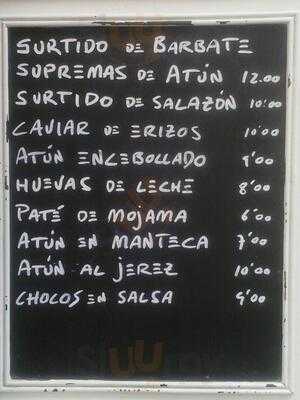 SURTIDO DE BARBATE
SUPREMAS DE ATÚN 12.00
SURTIDO DE SALAZÓN 10'00
CAVIAR DE ERIZOS 10'00
ATÚN ENCEBOLLADO 9'00
HUEVAS DE LECHE 8'00
PATÉ DE MOJAMA 6'00
ATÚN EN MANTECA 7'00
ATÚN AL JEREZ 10'00
CHOCOS EN SALSA 9'00